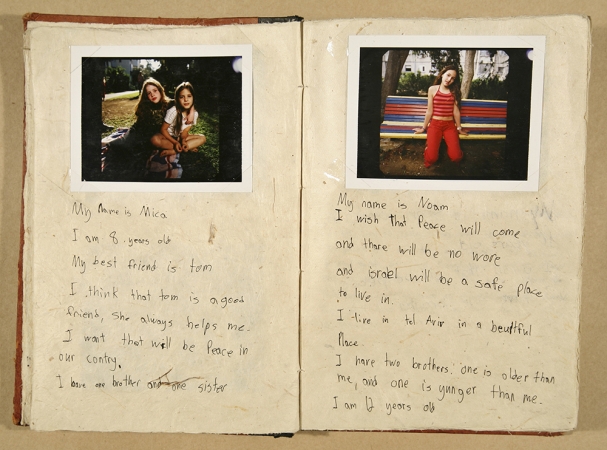 My Name is Mica
I am 8 years old
My best friend is tom
I think that tom is a good
friend, she always helps me.
I want that will be Peace in
our contry.
I have one brother and one sister
My name is Noam
I wish that Peace will come
and there will be no wore
and israel will be a safe place
to live in.
I live in tel Aviv in a beutful
Place.
I have two brothers. one is older than
me, and one is yunger than me.
I am 12 years old